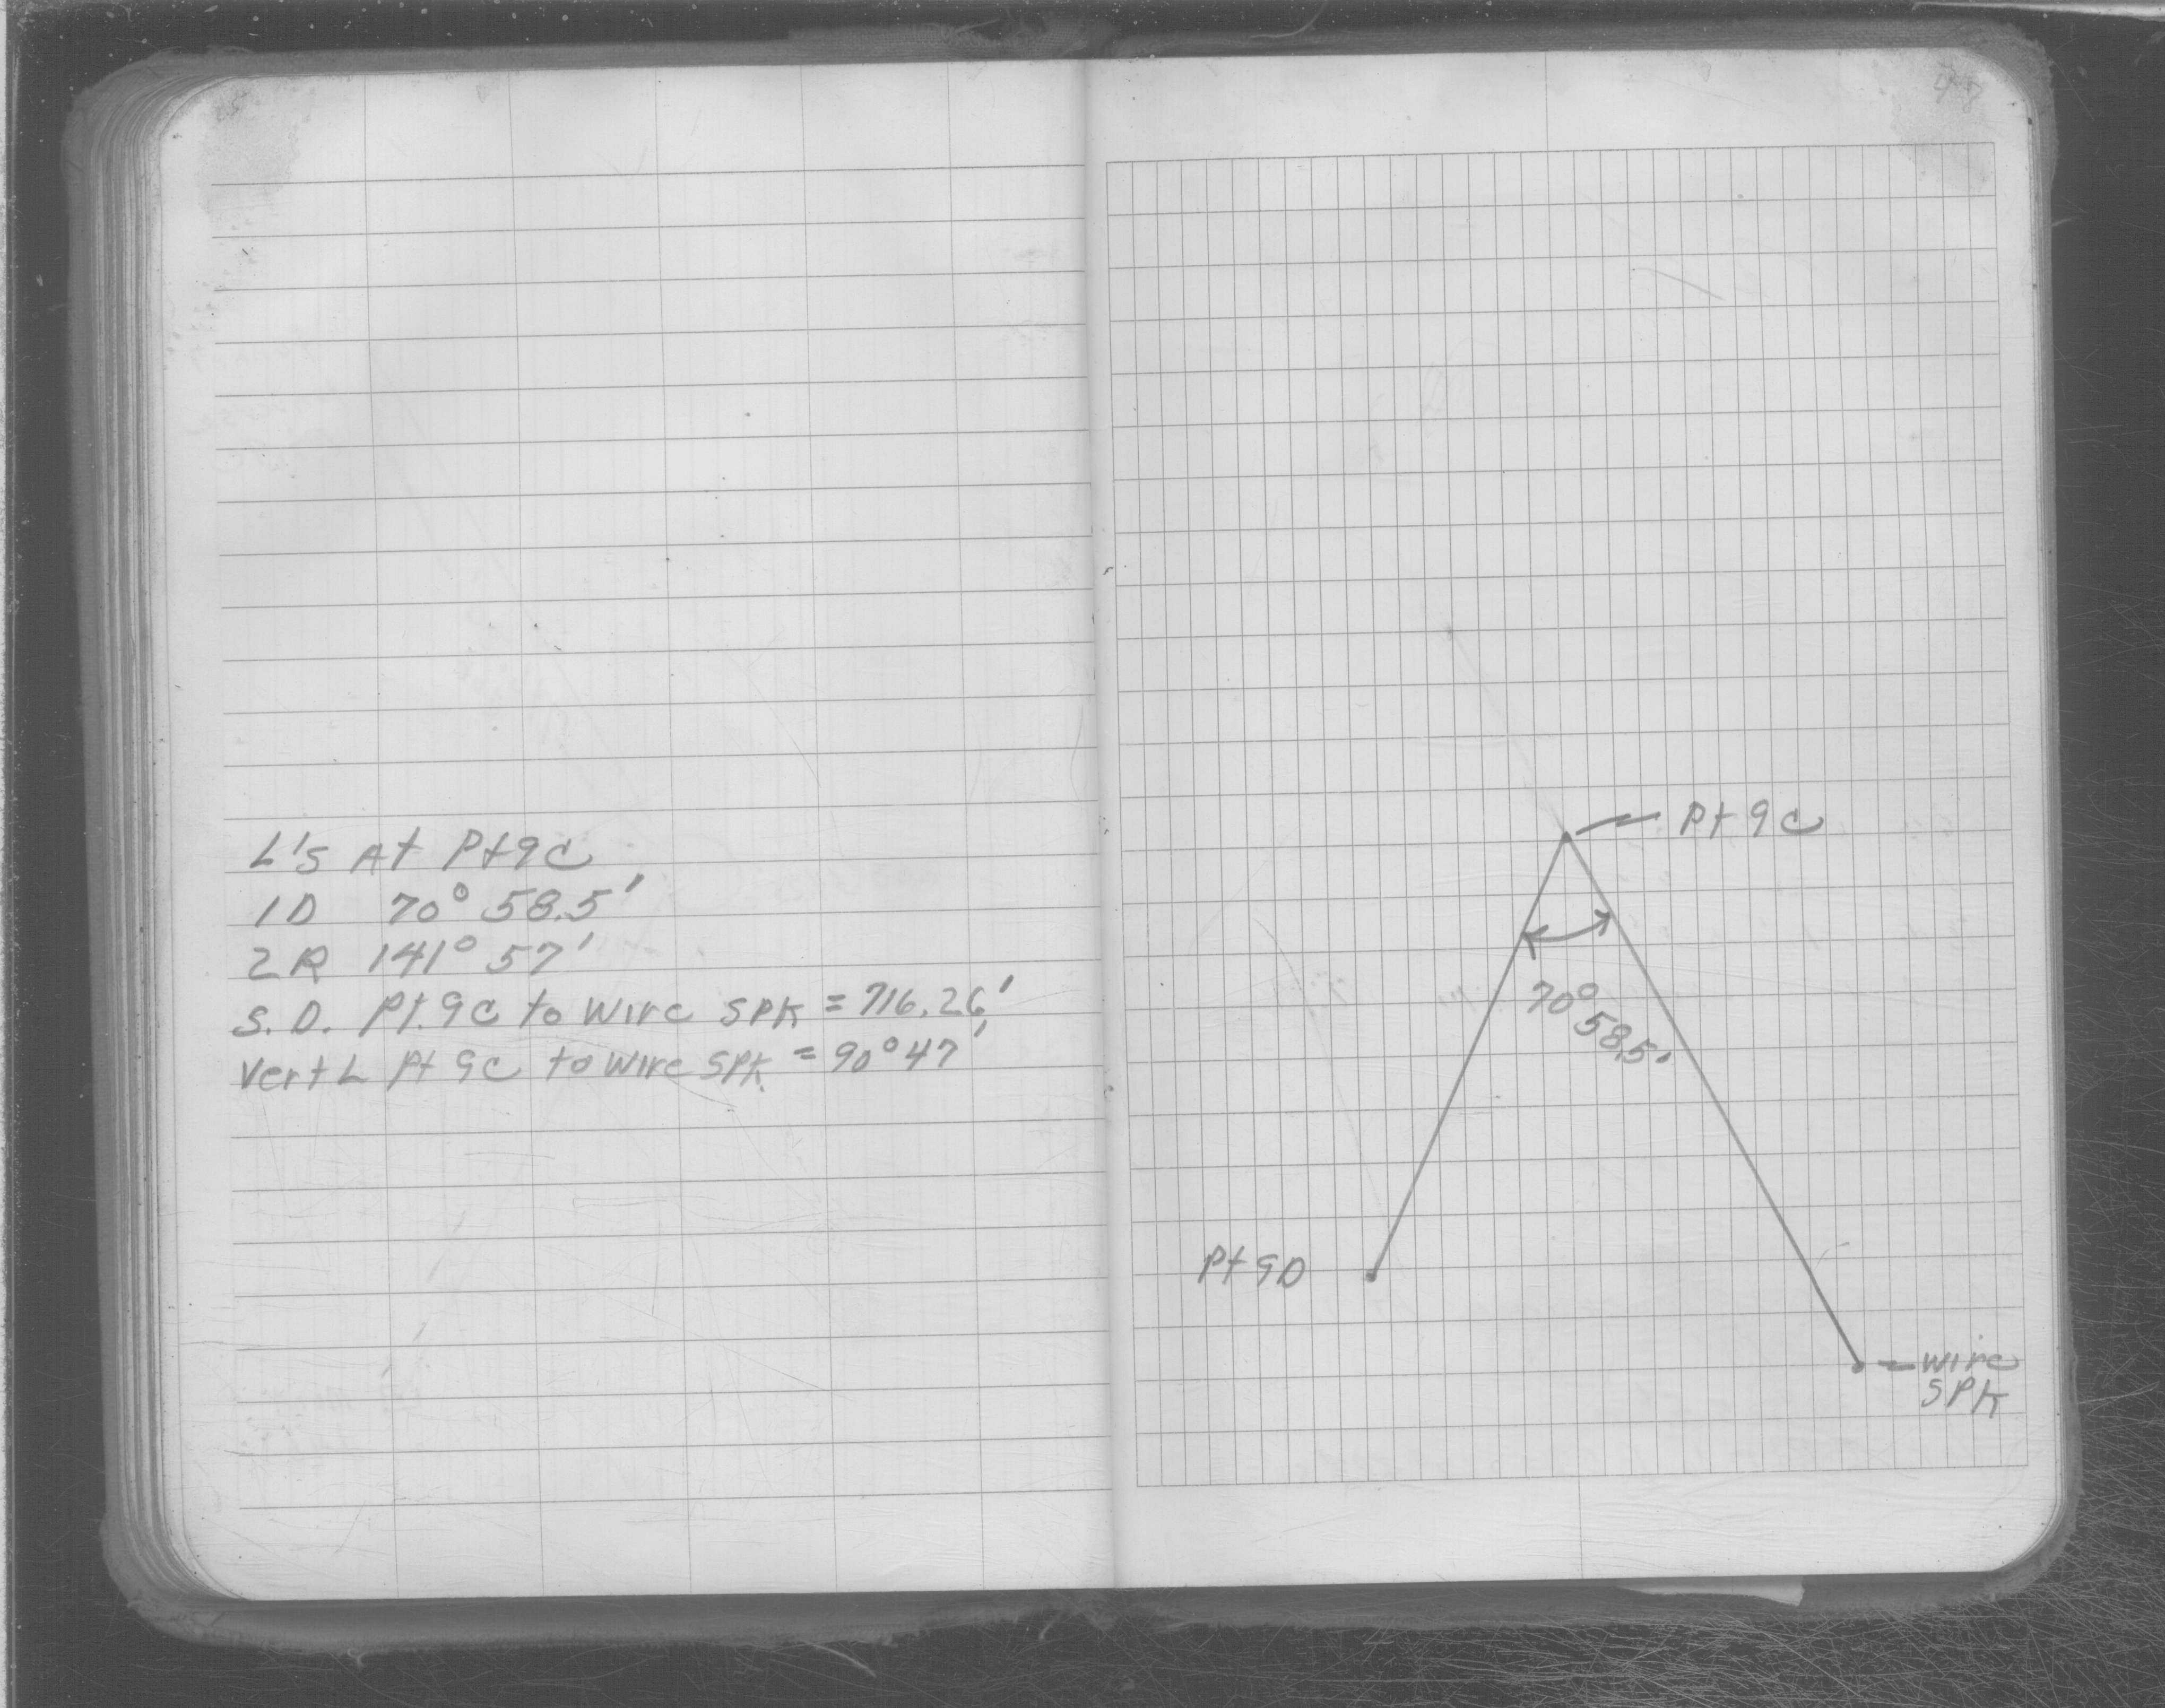 L's At Pt 9C
1D 70° 58.5'
2R 141° 57'
S.D. Pt. 9C to Wire SPK = 716.26'
Vert L Pt 9C to Wire SPK = 90° 47'
Pt 9C
70° 58.5'
Pt 9D
Wire
SPK